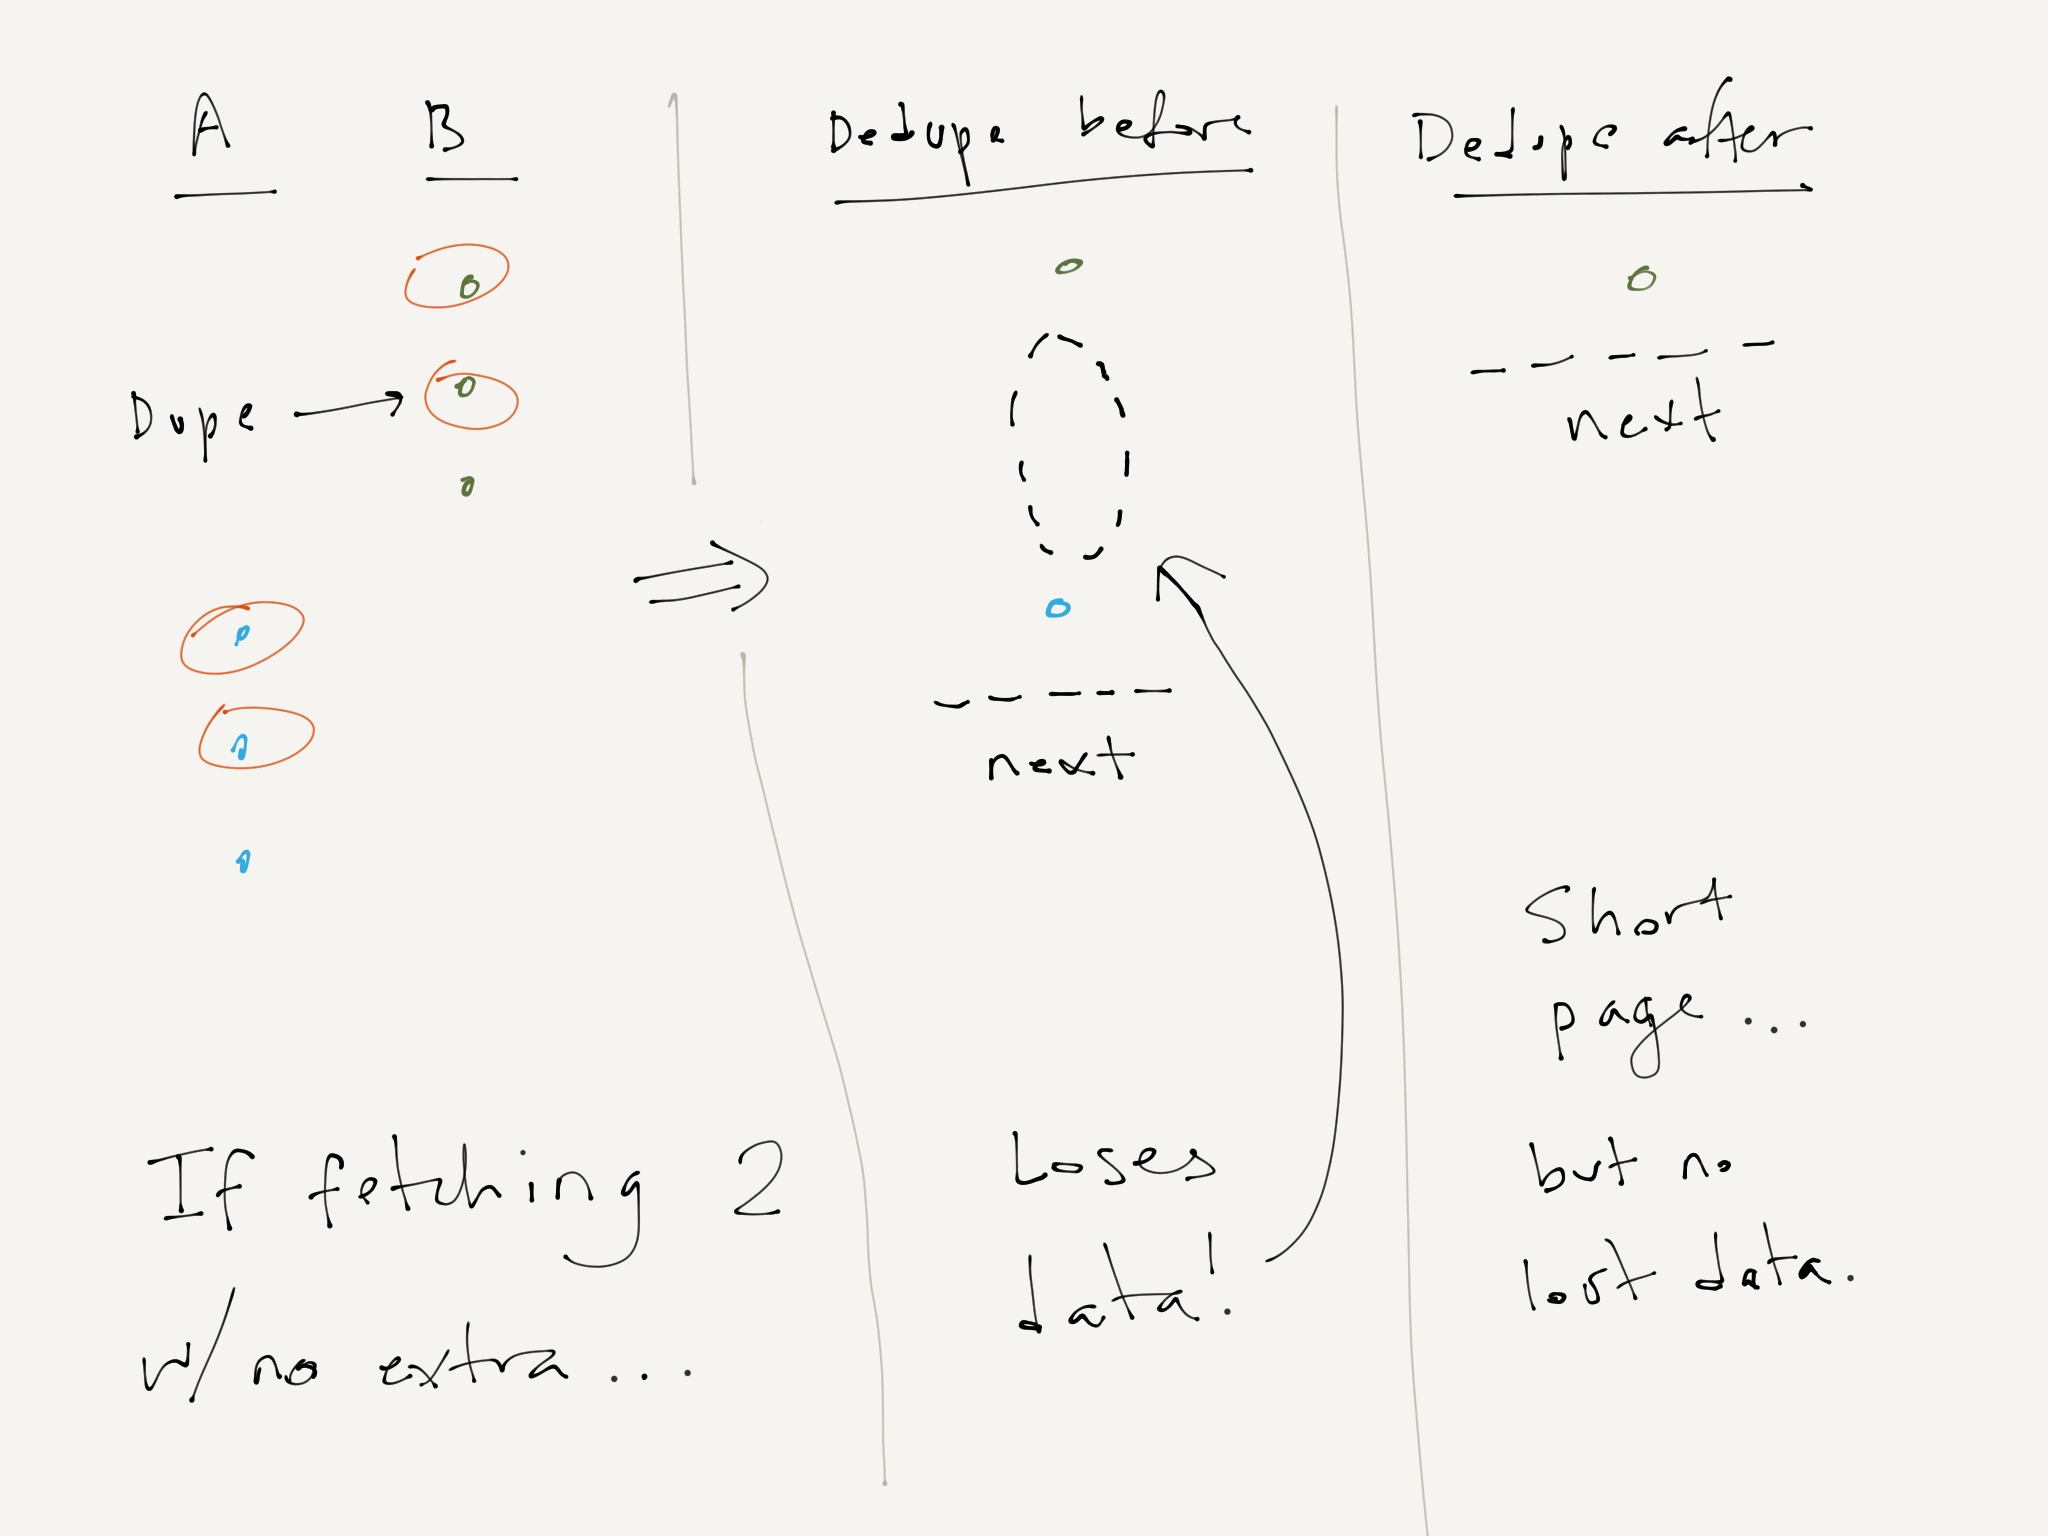 A
B
Dupe
If fetching 2
w/ no extra ...
Dedupe before
next
Loses
data!
Dedupe after
next
Short
page ...
but no
lost data.